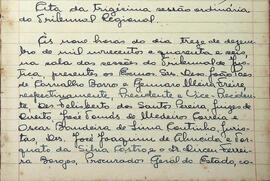 Ata da trigésima sessão ordinária
do Tribunal Regional.
Às nove horas do dia treze de dezem-
bro de mil novecentos e quarenta e seis
na sala das sessões do Tribunal de Jus-
tiça, presentes os Exmos. Srs. Des. João Paes
de Carvalho Barro e Gennaro Freire,
respectivamente, Presidente e Vice-Presiden-
te, Drs. Felisberto dos Santos Pereira, Juiz de
Direito, José Tomás de Medeiros Correia e
Oscar Bandeira de Lima Coutinho, juris-
tas, Des. José Joaquim de Almeida e Tor-
quato da Silva Castro, e o Dr. Dirceu Ferrei-
ra Borges, Procurador Geral do Estado, co-